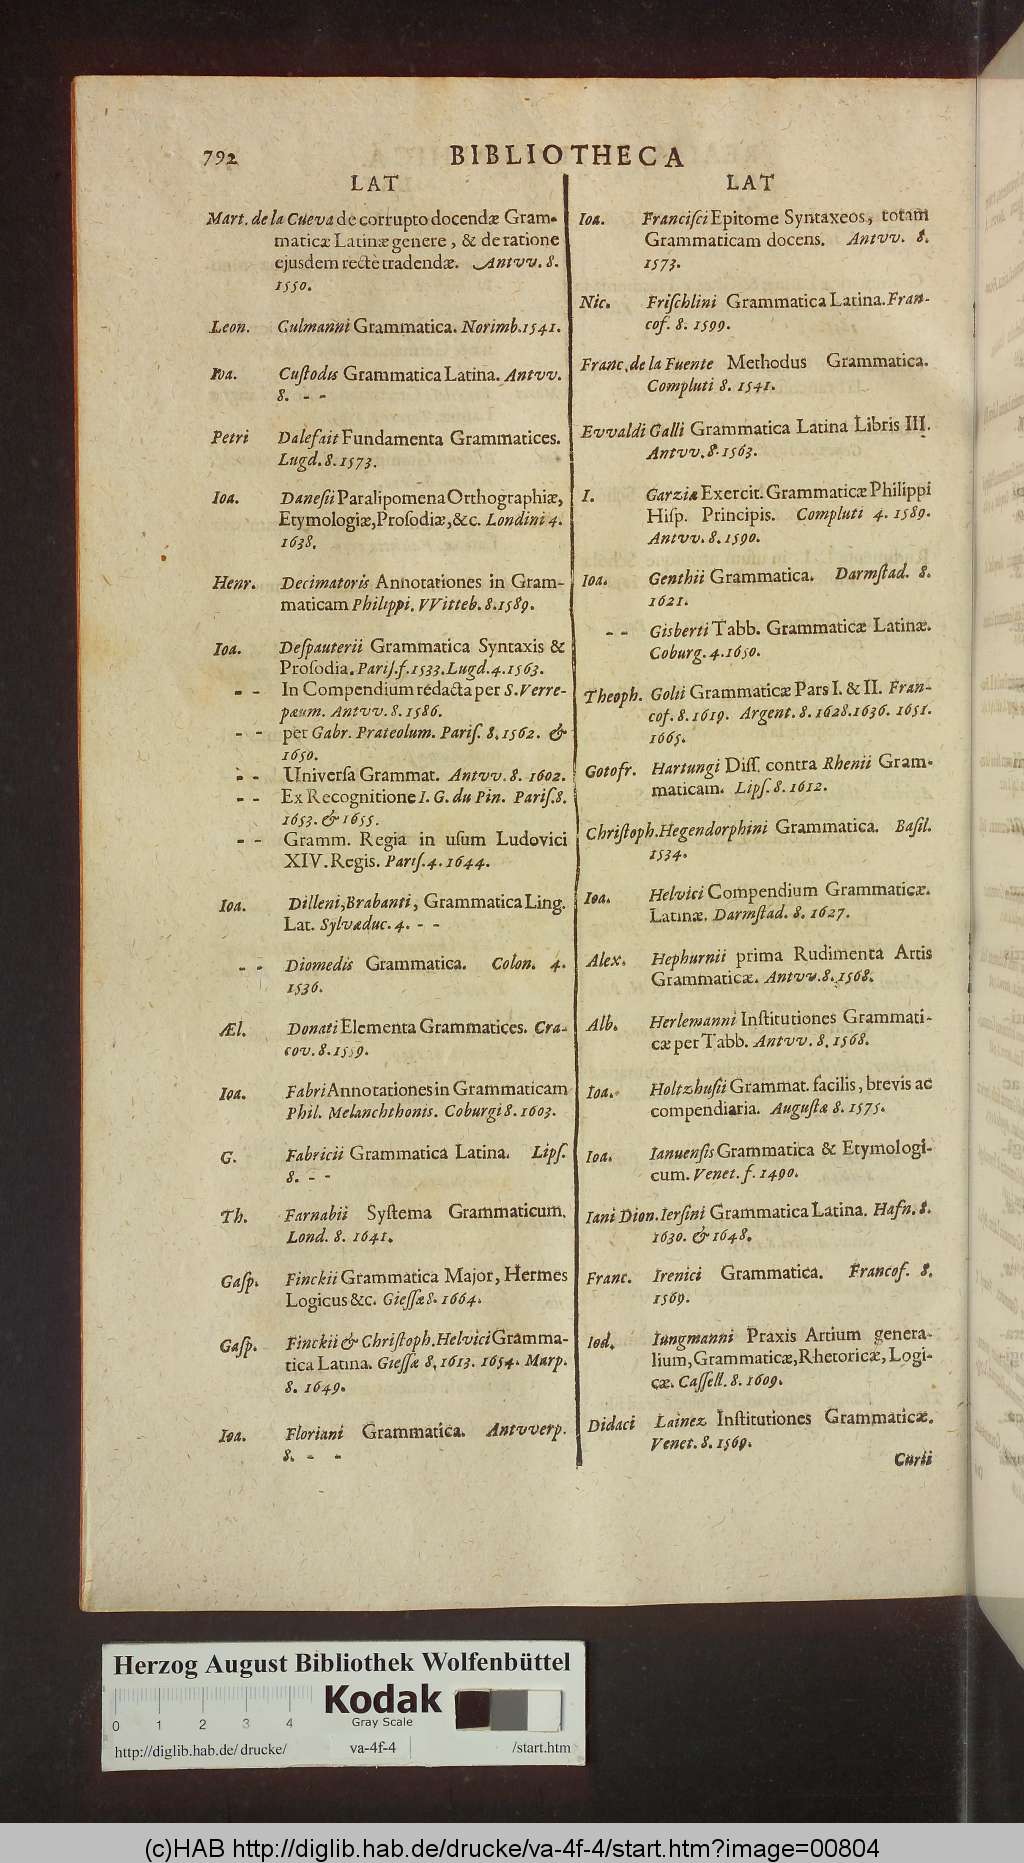 792
BIBLIOTHECA
LAT
Mart. de la Cueva de corrupto docendæ Gram-
maticæ Latinæ genere, & de ratione
ejusdem rectè tradendæ. Antvv. 8.
1550.
Leon. Culmanni Grammatica. Norimb. 1541.
Ioa. Cuſtodis Grammatica Latina. Antvv.
8. - -
Petri Dalefait Fundamenta Grammatices.
Lugd. 8. 1573.
Ioa. Daneſii Paralipomena Orthographiæ,
Etymologiæ, Proſodiæ, &c. Londini 4.
1638.
Henr. Decimatoris Annotationes in Gram-
maticam Philippi. VVitteb. 8. 1589.
Ioa. Deſpauterii Grammatica Syntaxis &
Proſodia. Pariſ. f. 1533. Lugd. 4. 1563.
- - In Compendium redacta per S. Verre-
pæum. Antvv. 8. 1586.
- - per Gabr. Prateolum. Pariſ. 8. 1562. &
1650.
- - Univerſa Grammat. Antvv. 8. 1602.
- - Ex Recognitione I. G. du Pin. Pariſ. 8.
1653. & 1655.
- - Gramm. Regia in uſum Ludovici
XIV. Regis. Pariſ. 4. 1644.
Ioa. Dilleni, Brabanti, Grammatica Ling.
Lat. Sylvæduc. 4. - -
- - Diomedis Grammatica. Colon. 4.
1536.
Æl. Donati Elementa Grammatices. Cra-
cov. 8. 1559.
Ioa. Fabri Annotationes in Grammaticam
Phil. Melanchthonis. Coburgi 8. 1603.
G. Fabricii Grammatica Latina. Lipſ.
8. - -
Th. Farnabii Syſtema Grammaticum.
Lond. 8. 1641.
Gaſp. Finckii Grammatica Major, Hermes
Logicus &c. Gieſſæ 8. 1664.
Gaſp. Finckii & Chriſtoph. Helvici Gramma-
tica Latina. Gieſſæ 8. 1613. 1654. Marp.
8. 1649.
Ioa. Floriani Grammatica. Antvverp.
8. - -
LAT
Ioa. Franciſci Epitome Syntaxeos, totam
Grammaticam docens. Antvv. 8.
1573.
Nic. Friſchlini Grammatica Latina. Fran-
cof. 8. 1599.
Franc. de la Fuente Methodus Grammatica.
Compluti 8. 1541.
Evvaldi Galli Grammatica Latina Libris III.
Antvv. 8. 1563.
I. Garziæ Exercit. Grammaticæ Philippi
Hiſp. Principis. Compluti 4. 1589.
Antvv. 8. 1590.
Ioa. Genthii Grammatica. Darmſtad. 8.
1621.
- - Gisberti Tabb. Grammaticæ Latinæ.
Coburg. 4. 1650.
Theoph. Golii Grammaticæ Pars I. & II. Fran-
cof. 8. 1619. Argent. 8. 1628. 1636. 1651.
1665.
Gotofr. Hartungi Diſſ. contra Rhenii Gram-
maticam. Lipſ. 8. 1612.
Chriſtoph. Hegendorphini Grammatica. Baſil.
1534.
Ioa. Helvici Compendium Grammaticæ.
Latinæ. Darmſtad. 8. 1627.
Alex. Hephurnii prima Rudimenta Artis
Grammaticæ. Antvv. 8. 1568.
Alb. Herlemanni Inſtitutiones Grammati-
cæ per Tabb. Antvv. 8. 1568.
Ioa. Holtzhuſii Grammat. facilis, brevis ac
compendiaria. Auguſtæ 8. 1575.
Ioa. Ianuenſis Grammatica & Etymologi-
cum. Venet. f. 1490.
Iani Dion. Ierſini Grammatica Latina. Hafn. 8.
1630. & 1648.
Franc. Irenici Grammatica. Francof. 8.
1569.
Iod. Iungmanni Praxis Artium genera-
lium, Grammaticæ, Rhetoricæ, Logi-
cæ. Caſſell. 8. 1609.
Didaci Lainez Inſtitutiones Grammaticæ.
Venet. 8. 1569.
Curii
Herzog August Bibliothek Wolfenbüttel
0 1 2 3 4
Kodak
Gray Scale
http://diglib.hab.de/drucke/ va-4f-4 /start.htm
(c)HAB http://diglib.hab.de/drucke/va-4f-4/start.htm?image=00804